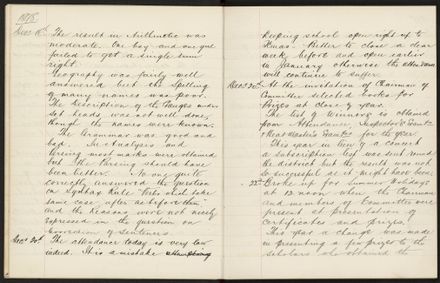 1878
Decr 18th The result in Arithmetic was
moderate. One boy and one girl
failed to get a single sum
right.
Geography was fairly well
answered but the spelling
of many names was poor.
The description of the Ranges under
set heads was not well done,
though the names were known.
The Grammar was good and
bad. In Analysis and
Parsing most marks were obtained
but the Parsing should have
been better. No one quite
correctly answered the question
on Syntax Rule "Verbs take
same case after as before them"
and the Reasons were not neatly
expressed in the question on
Conversion of Sentences.
Decr 20th The attendance today is very low
indeed. It is a mistake
keeping school open right up to
Xmas. Better to close a clear
week before and open earlier
in January otherwise the attendance
will continue to suffer.
Decr 20th At the invitation of Chairman of
Committee selected books for
Prizes at close of year.
The list of Winners is obtained
from Attendance, Inspector's Examtn
& Head Master's Examtn for the year.
This year in lieu of a concert
a subscription list was sent round
the district but the result was not
so successful as it might have been.
22nd Broke up for Summer Holidays
at 12 noon when the Chairman
and members of Committee were
present at presentation of
certificates and prizes.
This year a change was made
in presenting a few prizes to the
scholars who obtained the